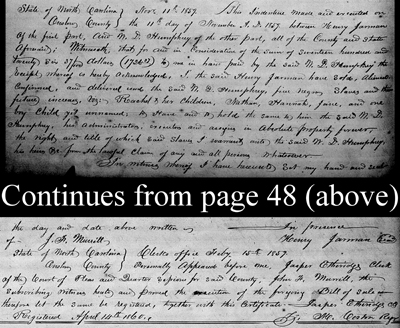 State of North Carolina } Nov. 11th 1857. This Indenture made and executed on
Onslow County } the 11th day of November A.D. 1857 between Henry Jarman
of the first part, and W. D. Humphrey of the other part, all of the County and State
Aforesaid; Witnesseth, that for and in Consideration of the sum of seventeen hundred and
Twenty Six dollars to me in hand paid by the said W. D. Humphrey the
receipt whereof is hereby acknowledged, I, the said Henry Jarman have Sold,
and delivered unto the said W. D. Humphrey, five negro Slaves and their
future increase, Viz: Rachel & her Children Nathan, Hannah, Jane, and one
boy Child yet unnamed; To Have and to hold the same to him the said W. D.
Humphrey, his administrators, executors and assigns in Absolute property forever
the right, and title of which said Slaves I warrant, unto the said W. D. Humphrey
his heirs &c from the lawful claim of any and all persons whatsoever.
In witness whereof I have hereunto set my hand and seal
Continues from page 48 (above)
the day and date above written In presence
of J. F. Murrill Henry Jarman Seal
State of North Carolina } Clerks office Feby 15th 1857.
Onslow County } Personally Appeared before me, Jasper Etheridge Clerk
of the Court of Pleas and Quarter Session for said County, John F. Murrill, the
subscribing witness hereto, and proved the execution of the foregoing Bill of Sale
therefore let the same be Registered, together with this Certificate Jasper Etheridge,
Registered April 14th 1860. M. Coston Regr